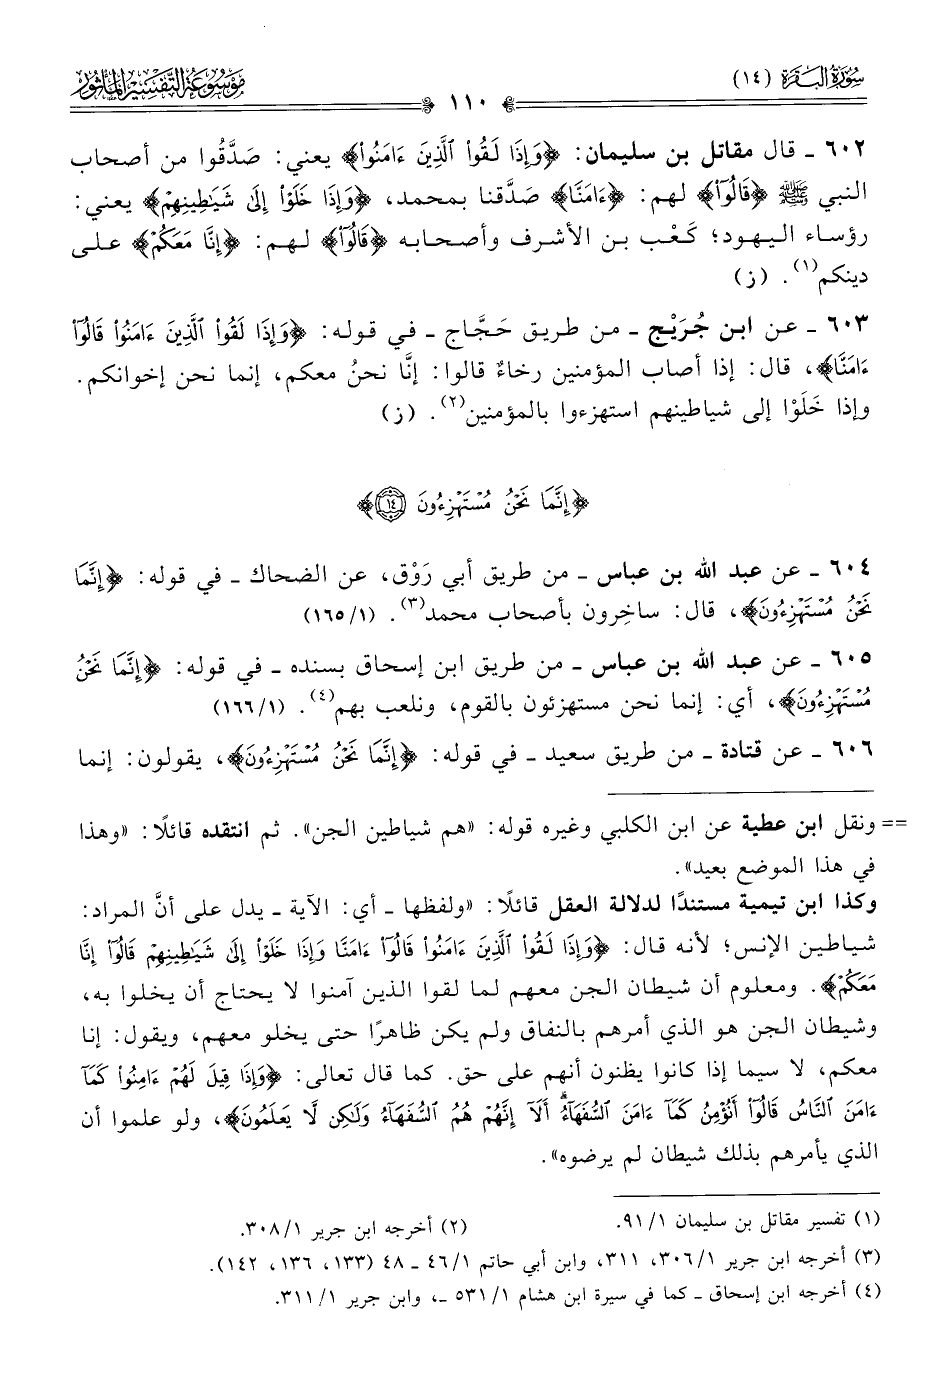 سُورَةُ البَقَرَة (١٤)
١١٠
مَوْسُوعَةُ التَّفْسِيرِ المَأْثُور
٦٠٢ ـ قال مقاتل بن سليمان: ﴿وَإِذَا لَقُواْ ٱلَّذِينَ ءَامَنُواْ﴾ يعني: صَدَّقُوا من أصحاب
النبي ﷺ ﴿قَالُوٓاْ﴾ لهم: ﴿ءَامَنَّا﴾ صَدَّقنا بمحمد، ﴿وَإِذَا خَلَوۡاْ إِلَىٰ شَيَٰطِينِهِمۡ﴾ يعني:
رؤساء اليهود؛ كَعْب بن الأشرف وأصحابه ﴿قَالُوٓاْ﴾ لهم: ﴿إِنَّا مَعَكُمۡ﴾ على
دينكم(١). (ز)
٦٠٣ ـ عن ابن جُرَيْج ـ من طريق حَجَّاج ـ في قوله: ﴿وَإِذَا لَقُواْ ٱلَّذِينَ ءَامَنُواْ قَالُوٓاْ
ءَامَنَّا﴾، قال: إذا أصاب المؤمنين رخاءٌ قالوا: إنَّا نحنُ معكم، إنما نحن إخوانكم.
وإذا خَلَوْا إلى شياطينهم استهزءوا بالمؤمنين(٢). (ز)
﴿إِنَّمَا نَحۡنُ مُسۡتَهۡزِءُونَ ١٤﴾
٦٠٤ ـ عن عبد الله بن عباس ـ من طريق أبي رَوْق، عن الضحاك ـ في قوله: ﴿إِنَّمَا
نَحۡنُ مُسۡتَهۡزِءُونَ﴾، قال: ساخِرون بأصحاب محمد(٣). (١/ ١٦٥)
٦٠٥ ـ عن عبد الله بن عباس ـ من طريق ابن إسحاق بسنده ـ في قوله: ﴿إِنَّمَا نَحۡنُ
مُسۡتَهۡزِءُونَ﴾، أي: إنما نحن مستهزئون بالقوم، ونلعب بهم(٤). (١/ ١٦٦)
٦٠٦ ـ عن قتادة ـ من طريق سعيد ـ في قوله: ﴿إِنَّمَا نَحۡنُ مُسۡتَهۡزِءُونَ﴾، يقولون: إنما
== ونقل ابن عطية عن ابن الكلبي وغيره قوله: «هم شياطين الجن». ثم انتقده قائلًا: «وهذا
في هذا الموضع بعيد».
وكذا ابن تيمية مستندًا لدلالة العقل قائلًا: «ولفظها ـ أي: الآية ـ يدل على أنَّ المراد:
شياطين الإنس؛ لأنه قال: ﴿وَإِذَا لَقُواْ ٱلَّذِينَ ءَامَنُواْ قَالُوٓاْ ءَامَنَّا وَإِذَا خَلَوۡاْ إِلَىٰ شَيَٰطِينِهِمۡ قَالُوٓاْ إِنَّا
مَعَكُمۡ﴾. ومعلوم أن شيطان الجن معهم لما لقوا الذين آمنوا لا يحتاج أن يخلوا به،
وشيطان الجن هو الذي أمرهم بالنفاق ولم يكن ظاهرًا حتى يخلو معهم، ويقول: إنا
معكم، لا سيما إذا كانوا يظنون أنهم على حق. كما قال تعالى: ﴿وَإِذَا قِيلَ لَهُمۡ ءَامِنُواْ كَمَآ
ءَامَنَ ٱلنَّاسُ قَالُوٓاْ أَنُؤۡمِنُ كَمَآ ءَامَنَ ٱلسُّفَهَآءُۗ أَلَآ إِنَّهُمۡ هُمُ ٱلسُّفَهَآءُ وَلَٰكِن لَّا يَعۡلَمُونَ﴾، ولو علموا أن
الذي يأمرهم بذلك شيطان لم يرضوه».
(١) تفسير مقاتل بن سليمان ١/ ٩١. (٢) أخرجه ابن جرير ١/ ٣٠٨.
(٣) أخرجه ابن جرير ١/ ٣٠٦، ٣١١، وابن أبي حاتم ١/ ٤٦ ـ ٤٨ (١٣٣، ١٣٦، ١٤٢).
(٤) أخرجه ابن إسحاق ـ كما في سيرة ابن هشام ١/ ٥٣١ ـ، وابن جرير ١/ ٣١١.